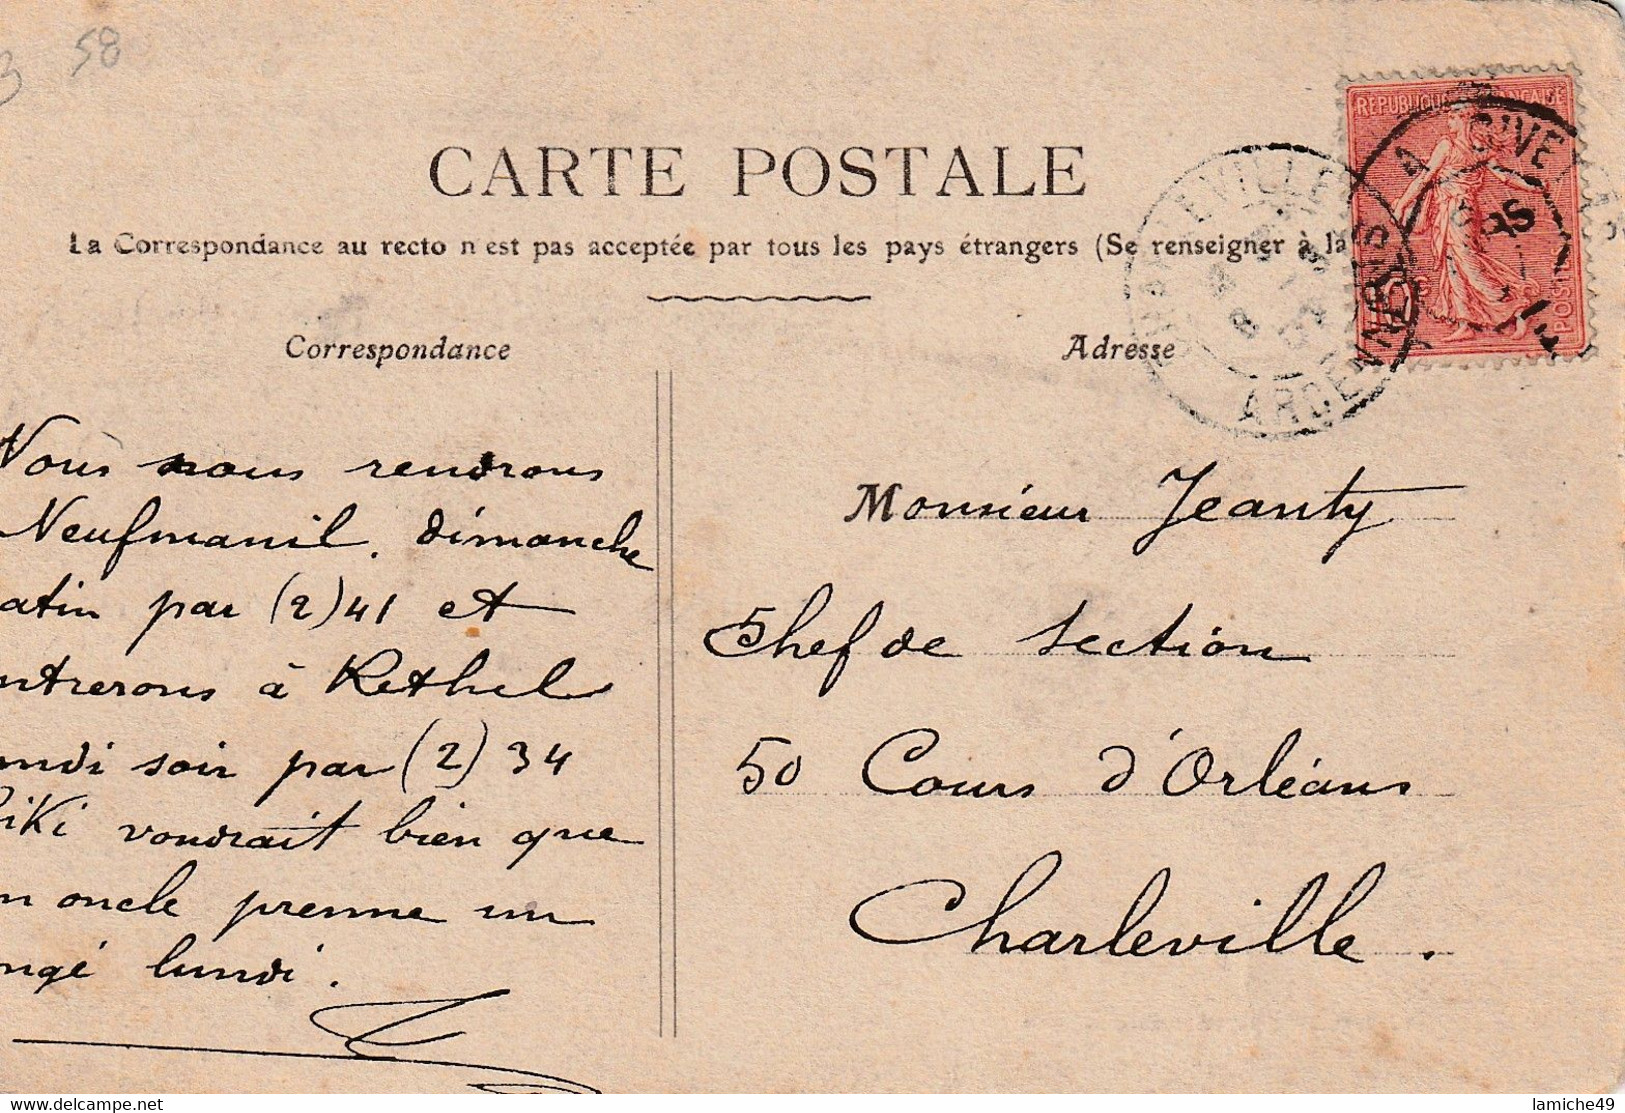 58
CARTE POSTALE
La Correspondance au recto n'est pas acceptée par tous les pays étrangers (Se renseigner à la
Correspondance
Adresse
RÉPUBLIQUE FRANÇAISE
POSTES
GIVET
ARDENNES
ARDENNES
Nous nous rendrons
Neufmanil. dimanche
atin par (2) 41 et
ntrerons à Rethel
undi soir par (2) 34
Kiki voudrait bien que
on oncle prenne un
ongé lundi.
Monsieur Jeanty
Chef de section
50 Cours d'Orléans
Charleville.
delcampe.net
lamiche49